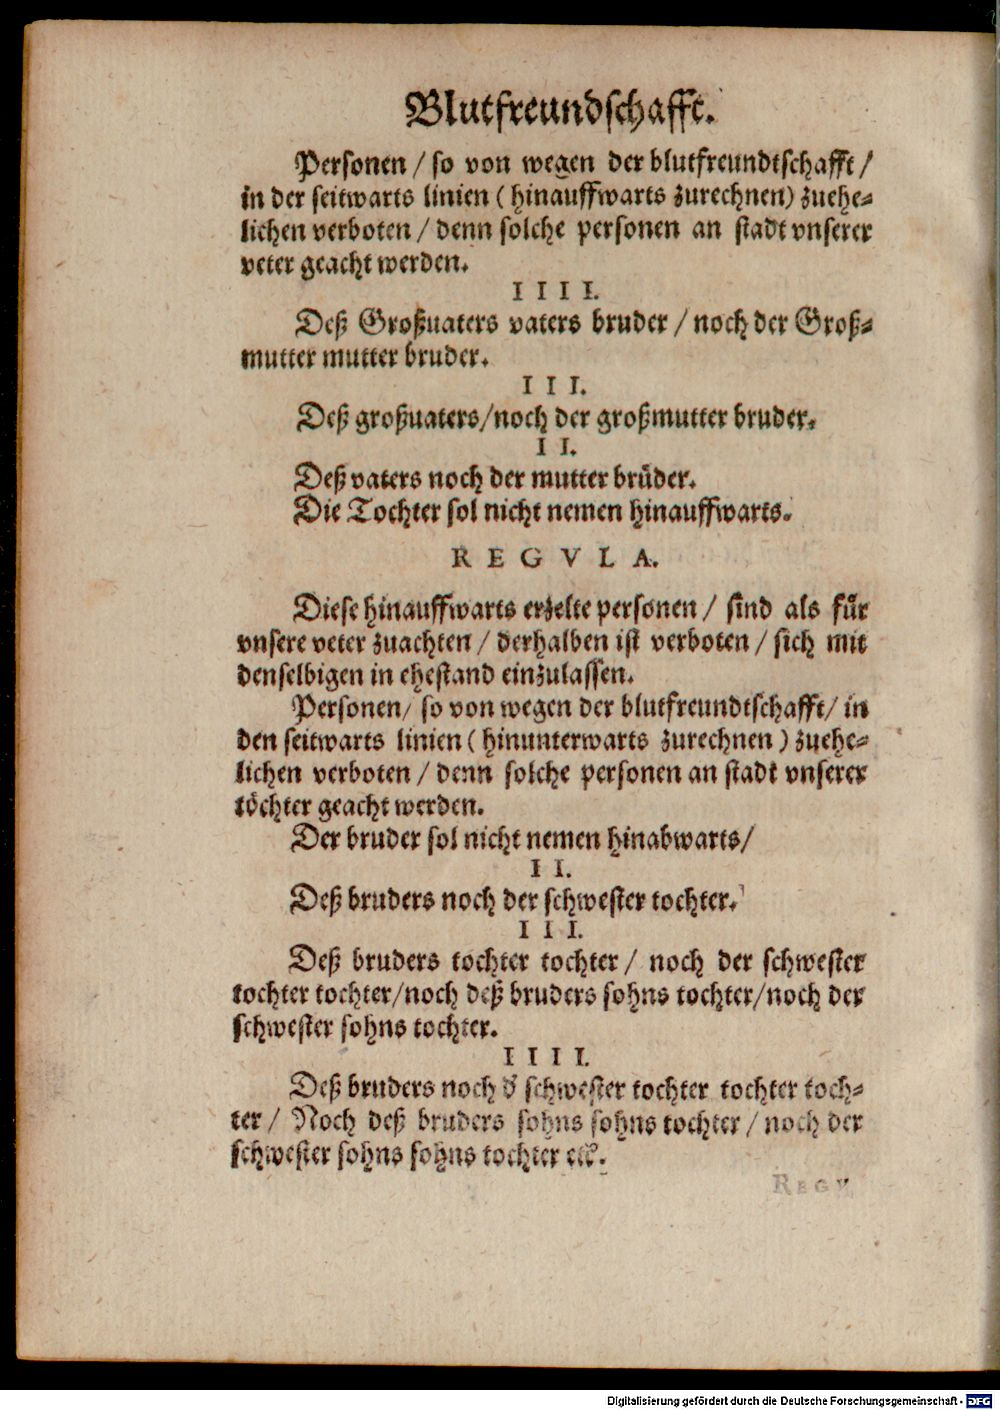 Blutfreundschafft.
Personen / so von wegen der blutfreundtschafft /
in der seitwarts linien ( hinauffwarts zurechnen) zuehe-
lichen verboten / denn solche personen an stadt vnserer
veter geacht werden.
I I I I.
Deß Großuaters vaters bruder / noch der Groß-
mutter mutter bruder.
I I I.
Deß großuaters/noch der großmutter bruder.
I I.
Deß vaters noch der mutter brüder.
Die Tochter sol nicht nemen hinauffwarts.
R E G V L A.
Diese hinauffwarts erzelte personen / sind als für
vnsere veter zuachten / derhalben ist verboten / sich mit
denselbigen in ehestand einzulassen.
Personen/ so von wegen der blutfreundtschafft/ in
den seitwarts linien ( hinunterwarts zurechnen ) zuehe-
lichen verboten / denn solche personen an stadt vnserer
töchter geacht werden.
Der bruder sol nicht nemen hinabwarts/
I I.
Deß bruders noch der schwester tochter.
I I I.
Deß bruders tochter tochter / noch der schwester
tochter tochter/noch deß bruders sohns tochter/noch der
schwester sohns tochter.
I I I I.
Deß bruders noch d' schwester tochter tochter toch-
ter / Noch deß bruders sohns sohns tochter / noch der
schwester sohns sohns tochter etc.
REGV
Digitalisierung gefördert durch die Deutsche Forschungsgemeinschaft - DFG